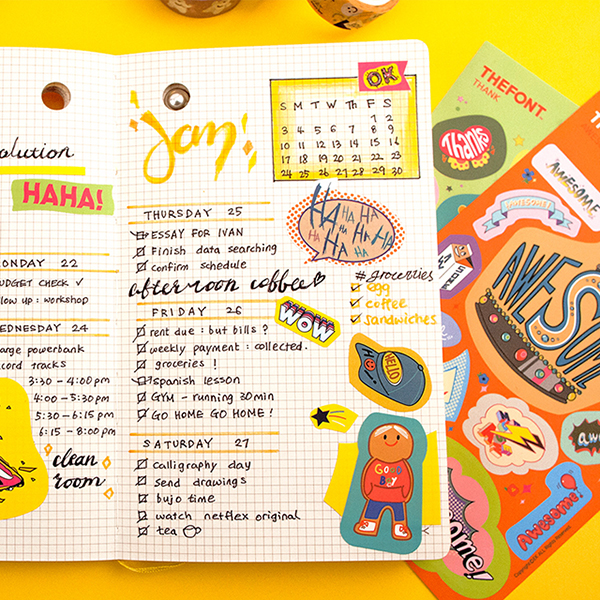 olution
HAHA!
ONDAY 22
UDGET CHECK ✓
low up : workshop
EDNESDAY 24
arge powerbank
cord tracks
3:30 - 4:00 pm
4:00 - 5:30 pm
5:30 - 6:15 pm
6:15 - 8:00 pm
clean
room
Jan
OK
S M T W Th F S
1 2
3 4 5 6 7 8 9
10 11 12 13 14 15 16
17 18 19 20 21 22 23
24 25 26 27 28 29 30
THURSDAY 25
ESSAY FOR IVAN
Finish data searching
confirm schedule
afternoon coffee
HA HA HA
HA HA HA HA
HA HA
#groceries
egg
coffee
sandwiches
FRIDAY 26
rent due : but bills ?
weekly payment : collected.
groceries !
spanish lesson
GYM - running 30min
GO HOME GO HOME !
WOW
HELLO
SATURDAY 27
calligraphy day
send drawings
bujo time
watch netflex original
tea
GOOD
BOY
THEFONT
THANK
Thanks
AWESOME
AWESOME!
AWESOME
Awesome!